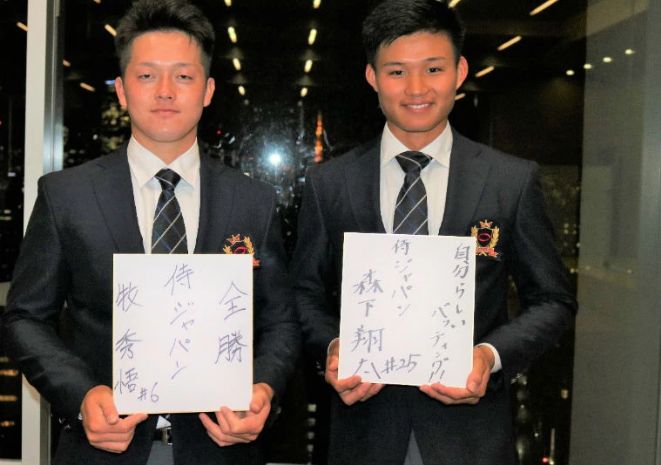 全勝
侍ジャパン
牧秀悟 #6
自分らしい
バッティング!
侍ジャパン
森下翔太 #25